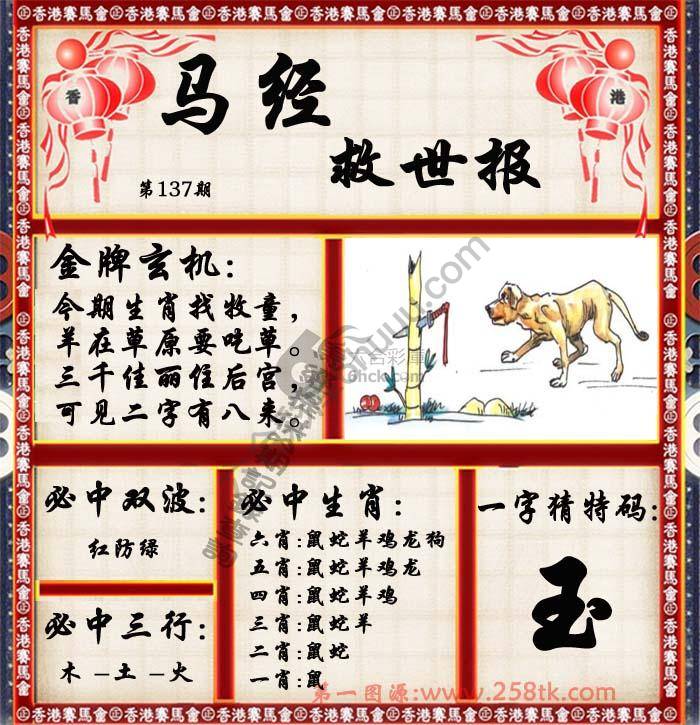 香港賽馬會
香 港
马经
救世报
第137期
金牌玄机：
今期生肖找牧童，
羊在草原要吃草。
三千佳丽住后宫，
可见二字有八来。
必中双波：
红防绿
必中三行：
木－土－火
必中生肖：
六肖:鼠蛇羊鸡龙狗
五肖:鼠蛇羊鸡龙
四肖:鼠蛇羊鸡
三肖:鼠蛇羊
二肖:鼠蛇
一肖:鼠
一字猜特码：
玉
第一图源:www.258tk.com